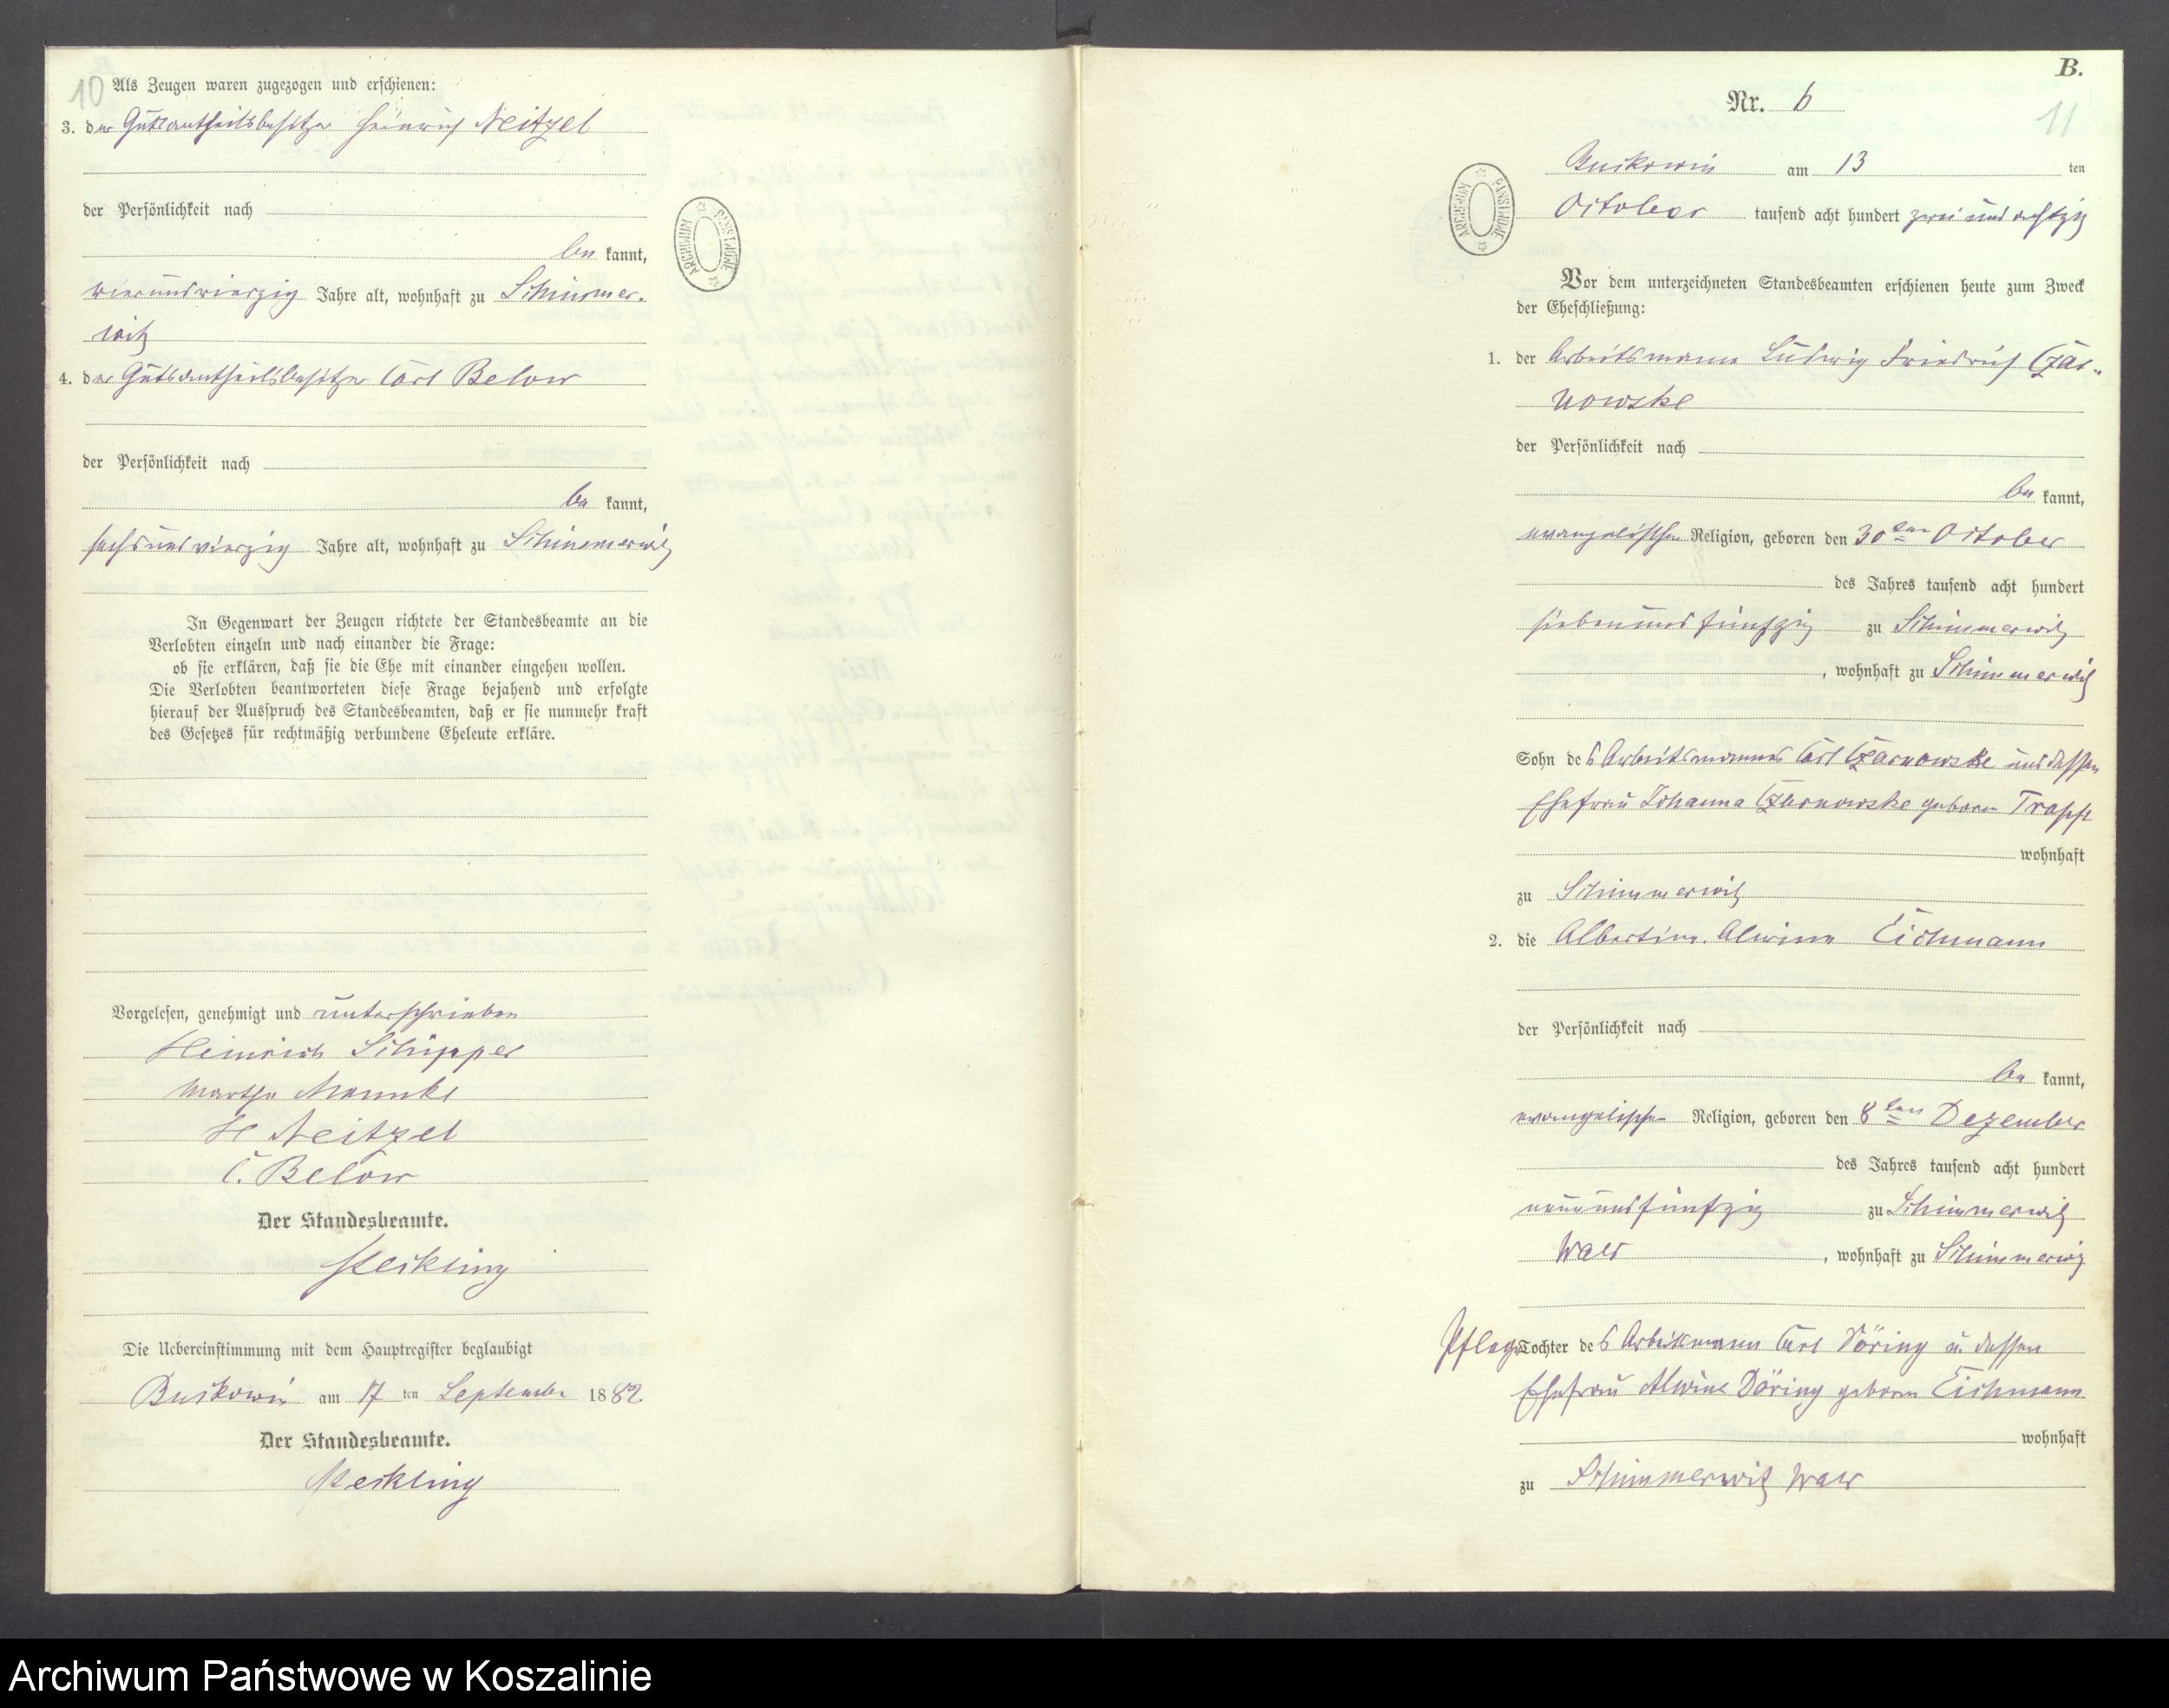 10
Als Zeugen waren zugezogen und erschienen:
3. der Gutsantheilsbesitzer Heinrich Neitzel
der Persönlichkeit nach
be kannt,
vierundvierzig Jahre alt, wohnhaft zu Schimmer-
witz
4. der Gutsantheilsbesitzer Carl Below
der Persönlichkeit nach
be kannt,
sechsundvierzig Jahre alt, wohnhaft zu Schimmerwitz
In Gegenwart der Zeugen richtete der Standesbeamte an die
Verlobten einzeln und nach einander die Frage:
ob sie erklären, daß sie die Ehe mit einander eingehen wollen.
Die Verlobten beantworteten diese Frage bejahend und erfolgte
hierauf der Ausspruch des Standesbeamten, daß er sie nunmehr kraft
des Gesetzes für rechtmäßig verbundene Eheleute erkläre.
Vorgelesen, genehmigt und unterschrieben
Heinrich Schipper
Martha
H Neitzel
C. Below
Der Standesbeamte.
Die Uebereinstimmung mit dem Hauptregister beglaubigt
Buckowin am 17 ten September 1882
Der Standesbeamte.
ARCHIWUM PAŃSTWOWE
B.
Nr. 6
11
Buckowin am 13 ten
October tausend acht hundert zwei und achtzig
Vor dem unterzeichneten Standesbeamten erschienen heute zum Zweck
der Eheschließung:
1. der Arbeitsmann Ludwig Friedrich Czar-
nowske
der Persönlichkeit nach
be kannt,
evangelischer Religion, geboren den 30ten October
des Jahres tausend acht hundert
siebenundfünfzig zu Schimmerwitz
, wohnhaft zu Schimmerwitz
Sohn des Arbeitsmannes Carl Czarnowske und dessen
Ehefrau Johanna Czarnowske geboren
wohnhaft
zu Schimmerwitz
2. die Albertine Alwine Eichmann
der Persönlichkeit nach
be kannt,
evangelischer Religion, geboren den 8ten Dezember
des Jahres tausend acht hundert
neunundfünfzig zu Schimmerwitz
Wald , wohnhaft zu Schimmerwitz
Pflege Tochter des Arbeitsmann Carl Döring u dessen
Ehefrau Alwine Döring geboren Eichmann
wohnhaft
zu Schimmerwitz Wald
ARCHIWUM PAŃSTWOWE
Archiwum Państwowe w Koszalinie